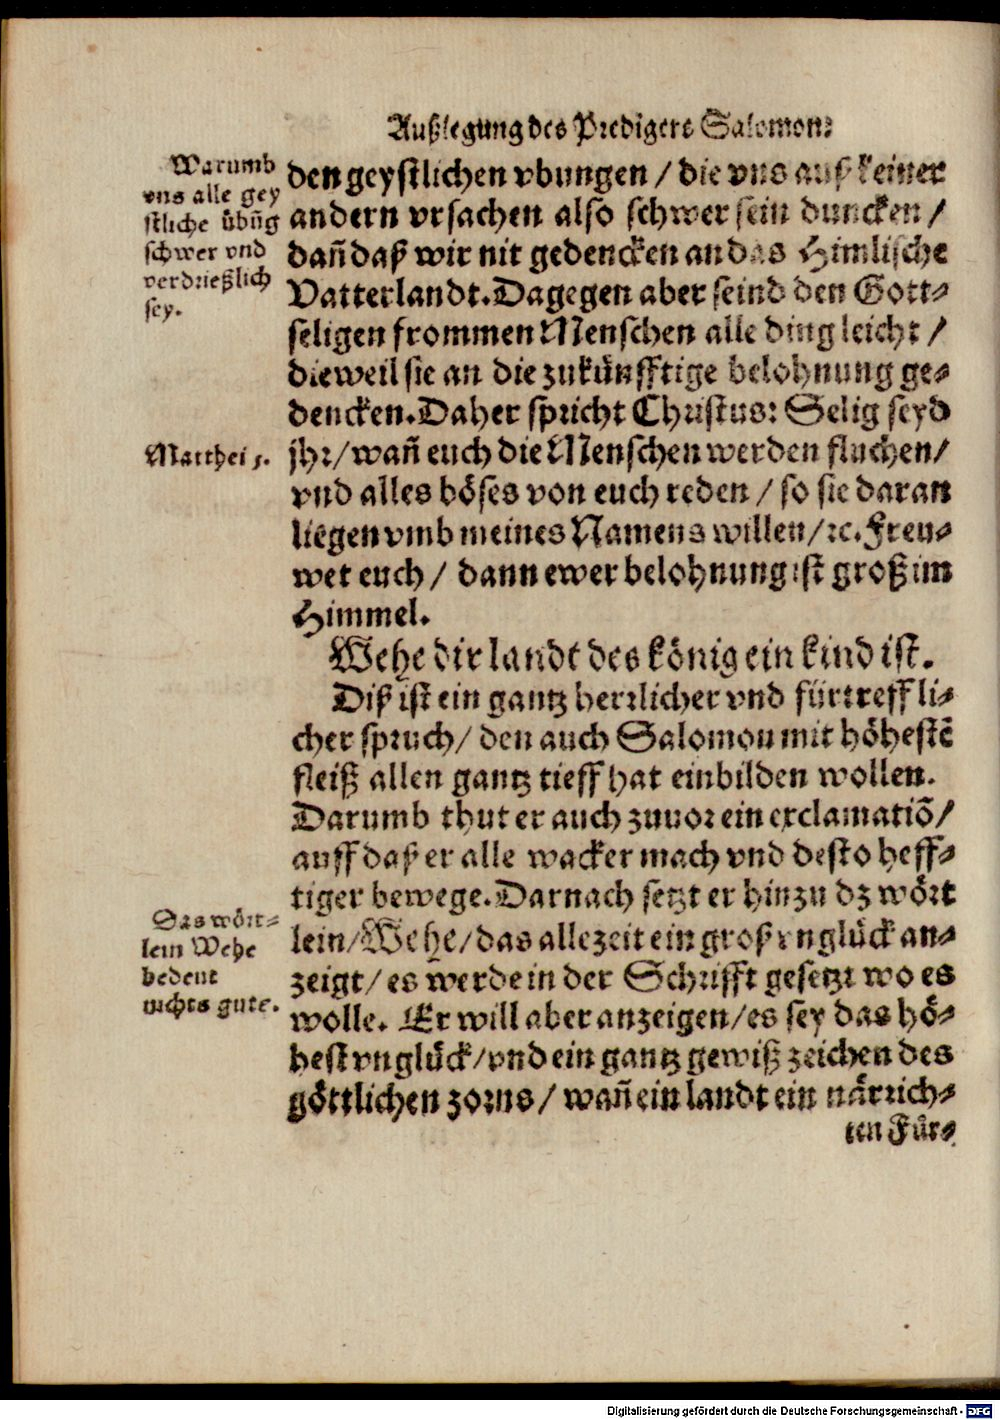 Außlegung des Predigers Salomons
Warumb
vns alle gey
stliche übuñg
schwer vnd
verdrießlich
sey.
den geystlichen vbungen / die vns auß keiner
andern vrsachen also schwer sein duncken /
dañ daß wir nit gedencken an das Himlische
Vatterlandt. Dagegen aber seind den Gott-
seligen frommen Menschen alle ding leicht /
dieweil sie an die zukünfftige belohnung ge-
dencken. Daher spricht Christus: Selig seyd
Matthei 5.
jhr / wañ euch die Menschen werden fluchen /
vnd alles böses von euch reden / so sie daran
liegen vmb meines Namens willen / ꝛc. Freu-
wet euch / dann ewer belohnung ist groß im
Himmel.
Wehe dir landt des könig ein kind ist.
Diß ist ein gantz herrlicher vnd fürtreffli-
cher spruch / den auch Salomon mit höhestẽ
fleiß allen gantz tieff hat einbilden wollen.
Darumb thut er auch zuuor ein exclamatiõ /
auff daß er alle wacker mach vnd desto heff-
tiger bewege. Darnach setzt er hinzu dz wört
Das wört-
lein Wehe
bedeut
nichts gute.
lein / Wehe / das allezeit ein groß vnglück an-
zeigt / es werde in der Schrifft gesetzt wo es
wolle. Er will aber anzeigen / es sey das hö-
hest vnglück / vnd ein gantz gewiß zeichen des
göttlichen zorns / wañ ein landt ein närrich-
ten Für-
Digitalisierung gefördert durch die Deutsche Forschungsgemeinschaft - DFG